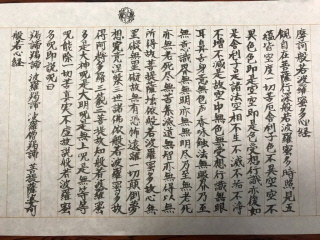 摩訶般若波羅蜜多心経
観自在菩薩行深般若波羅蜜多時照見五
蘊皆空度一切苦厄舎利子色不異空空不
異色色即是空空即是色受想行識亦復如
是舎利子是諸法空相不生不滅不垢不浄
不増不減是故空中無色無受想行識無眼
耳鼻舌身意無色声香味触法無眼界乃至
無意識界無無明亦無無明尽乃至無老死
亦無老死尽無苦集滅道無智亦無得以無
所得故菩提薩埵依般若波羅蜜多故心無
罣礙無罣礙故無有恐怖遠離一切顛倒夢
想究竟涅槃三世諸仏依般若波羅蜜多故
得阿耨多羅三藐三菩提故知般若波羅蜜
多是大神呪是大明呪是無上呪是無等等
呪能除一切苦真実不虚故説般若波羅蜜
多呪即説呪曰
羯諦羯諦 波羅羯諦 波羅僧羯諦 菩提薩婆訶
般若心経